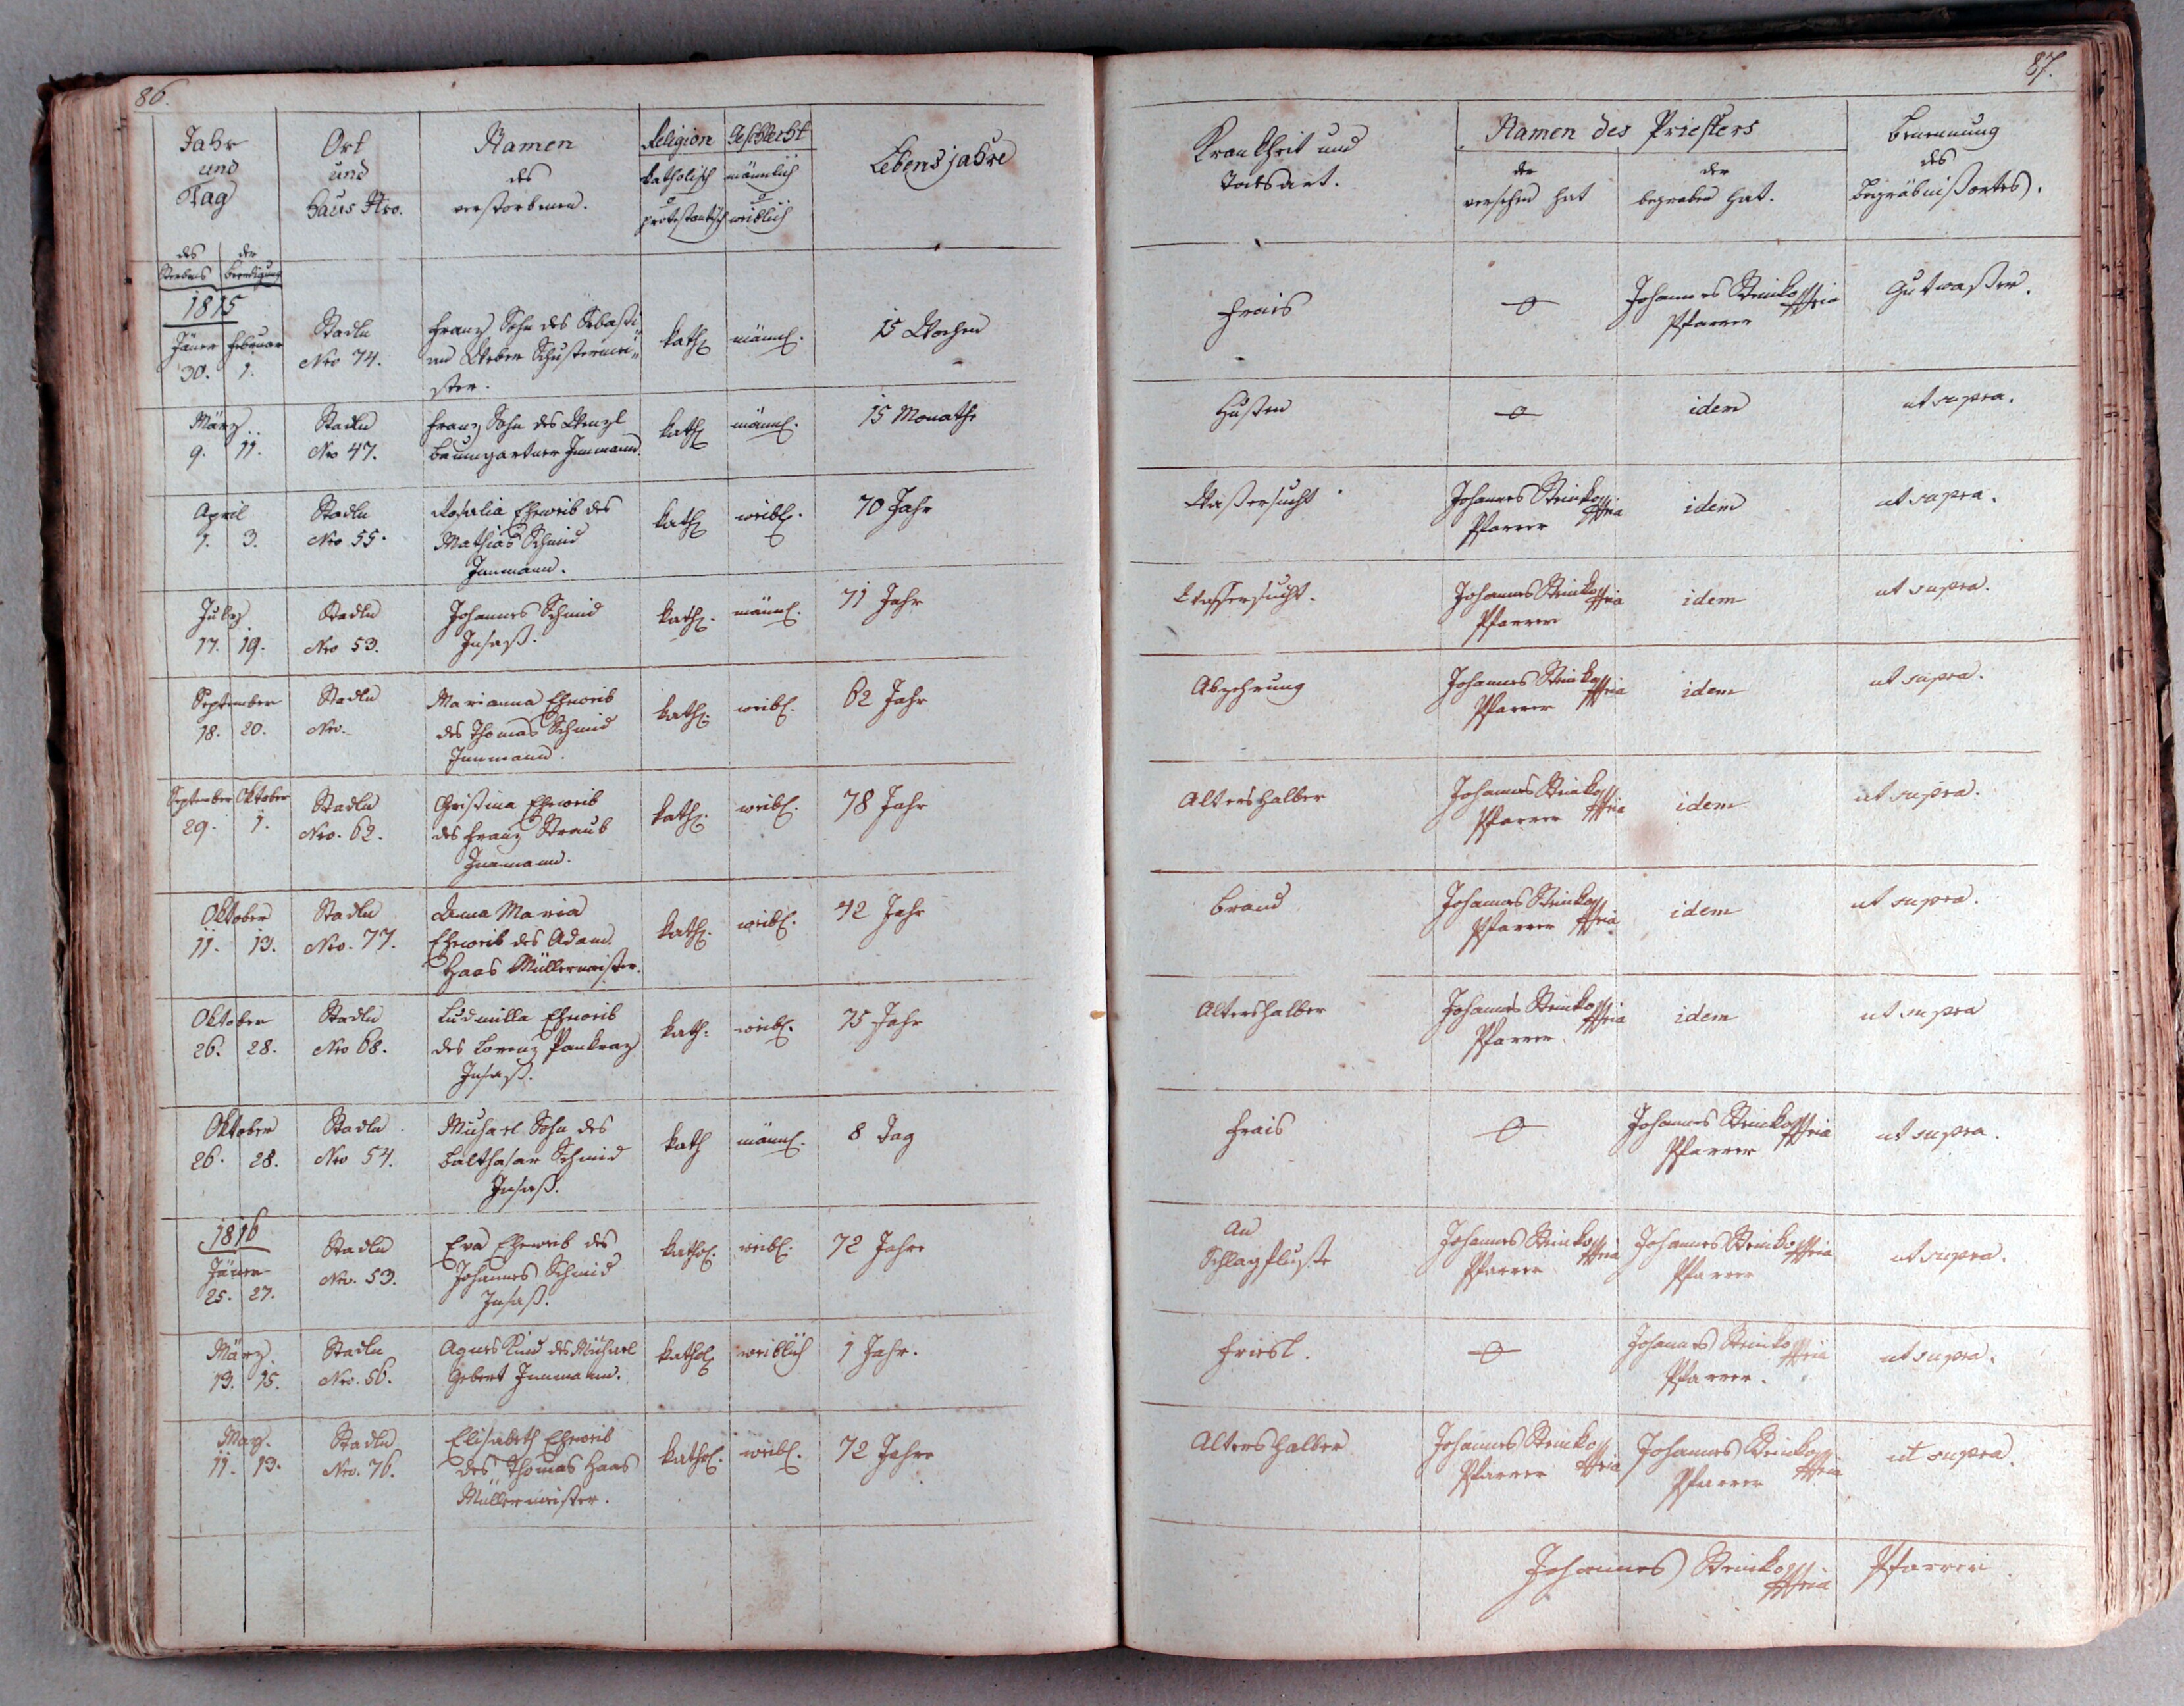 86.
Jahr
und
Tag
Ort
und
Haus Nro.
Namen
des
verstorbenen.
Religion
katholisch
o
protestantisch
Geschlecht
männlich
o
weiblich
Lebensjahre
des
Sterbens
der
Beerdigung
1815
Jäner
30.
Februar
1.
Stadln
Nro 74.
Franz Sohn des Sebasti
an Weber Schustermei
ster.
kath
männl.
15 Wochen
März
9. 11.
Stadln
Nro 47.
Franz Sohn des Wenzl
Baumgartner Innmann.
kath
männl.
15 Monathe
April
1. 3.
Stadln
Nro 55.
Rosalia Eheweib des
Mathias Schmid
Innmann.
kath
weibl.
70 Jahr
July
17. 19.
Stadln
Nro 53.
Johannes Schmid
Insaß.
kath.
männl.
71 Jahr
September
18. 20.
Stadln
Nro.
Marianna Eheweib
des Thomas Schmid
Innmann.
kath.
weibl.
62 Jahr
September Oktober
29. 1.
Stadln
Nro. 62.
Christina Eheweib
des Franz Straub
Innmann.
kath.
weibl.
78 Jahr
Oktober
11. 13.
Stadln
Nro. 77.
Anna Maria
Eheweib des Adam
Haas Müllermeister.
kath.
weibl.
42 Jahr
Oktober
26. 28.
Stadln
Nro 68.
Ludmilla Eheweib
des Lorenz Pankraz
Insaß.
kath.
weibl.
75 Jahr
Oktober
26. 28.
Stadln
Nro 54.
Michael Sohn des
Balthasar Schmid
Insaß.
kath
männl.
8 Tag
1816
Jäner
25. 27.
Stadln
Nro. 53.
Eva Eheweib des
Johannes Schmid
Insaß.
kathol.
weibl.
72 Jahre
März.
13. 15.
Stadln
Nro. 56.
Agnes Kind des Michael
Gebert Innmann.
kathol
weiblich
1 Jahr.
May.
11. 13.
Stadln
Nro. 76.
Elisabeth Eheweib
des Thomas Haas
Müllermeister.
kathol.
weibl.
72 Jahre
87.
Krankheit und
Todsart.
Namen des Priesters
der
versehen hat
der
begraben hat.
Benennung
des
Begräbnißortes.
Frais
o
Johannes
Pfarrer
Gutwaßer.
Husten
o
idem
ut supra.
Waßersucht
Johannes
Pfarrer
idem
ut supra.
Wassersucht.
Johannes
Pfarrer
idem
ut supra.
Abzehrung
Johannes
Pfarrer
idem
ut supra.
Altershalber
Johannes
Pfarrer
idem
ut supra.
Brand
Johannes
Pfarrer
idem
ut supra.
Altershalber
Johannes
Pfarrer
idem
ut supra
Frais
o
Johannes
Pfarrer
ut supra.
An
Schlagfluße
Johannes
Pfarrer
Johannes
Pfarrer
ut supra.
Friesl.
o
Johannes
Pfarrer.
ut supra.
Altershalber
Johannes
Pfarrer
Johannes
Pfarrer
ut supra.
Johannes
Pfarrer